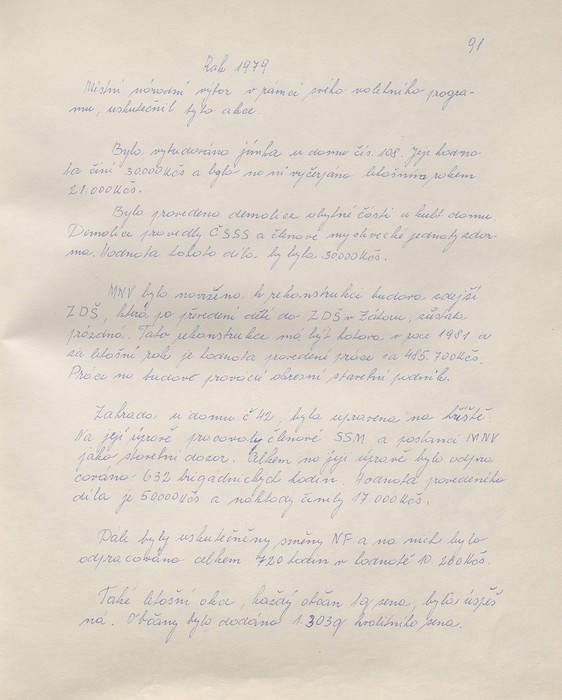 91
Rok 1979
Místní národní výbor v rámci svého volebního progra-
mu, uskutečnil tyto akce.
Byla vybudována jímka u domu čís. 108. Její hodno-
ta činí 30.000Kčs a bylo na ni vyčerpáno letošním rokem
21.000Kčs.
Byla provedena demolice obytné části u kult. domu.
Demolice provedly ČSSS a členové myslivecké jednoty zdar-
ma. Hodnota tohoto díla by byla 30000Kčs.
MNV bylo navrženo k rekonstrukci budova zdejší
ZDŠ, která po převedení dětí do ZDŠ v Zátoru, zůstala
prázdná. Tato rekonstrukce má být hotova v roce 1981 a
za letošní rok je hodnota provedení práce za 485.700Kčs.
Práce na budově provádí okresní stavební podnik.
Zahrada u domu č 42, byla upravena na hřiště.
Na její úpravě pracovaly členové SSM a poslanci MNV
jako stavební dozor. Celkem na její úpravě bylo odpra
cováno 632 brigádnických hodin. Hodnota provedeného
díla je 50000Kčs a náklady činily 17.000Kčs.
Dále byly uskutečněny směny NF a na nich bylo
odpracováno celkem 720 hodin v hodnotě 10.260Kčs.
Také letošní akce, každý občan 1q sena, byla úspěš
ná. Občany bylo dodáno 1.303q kvalitního sena.